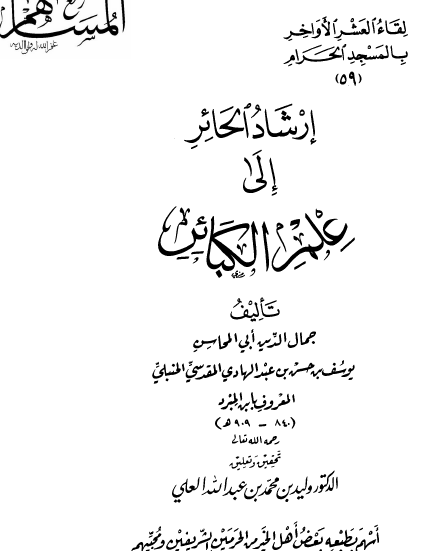 المساهم
غفر الله له ولوالديه
لِقَاءُ العَشْرِ الأَوَاخِرِ
بِالمَسْجِدِ الحَرَامِ
(٥٩)
إِرْشَادُ الحَائِرِ
إِلَى
عِلْمِ الكَبَائِرِ
تَأْلِيفُ
جمال الدّين أبي المحاسن
يوسُف بن حسَن بن عبْد الهادي المقدسيّ الحنبليّ
المعروف بابن المِبْرد
(٨٤٠ - ٩٠٩ هـ)
رحمه الله تعالى
تحقيق وتعليق
الدكتور وليد بن محمّد بن عبد الله العلي
أَسْهَمَ بِطَبْعِهِ بَعْضُ أَهْلِ الخَيْرِ مِن الحَرَمَيْنِ الشَّرِيفَيْنِ وَمُحِبِّيهِم